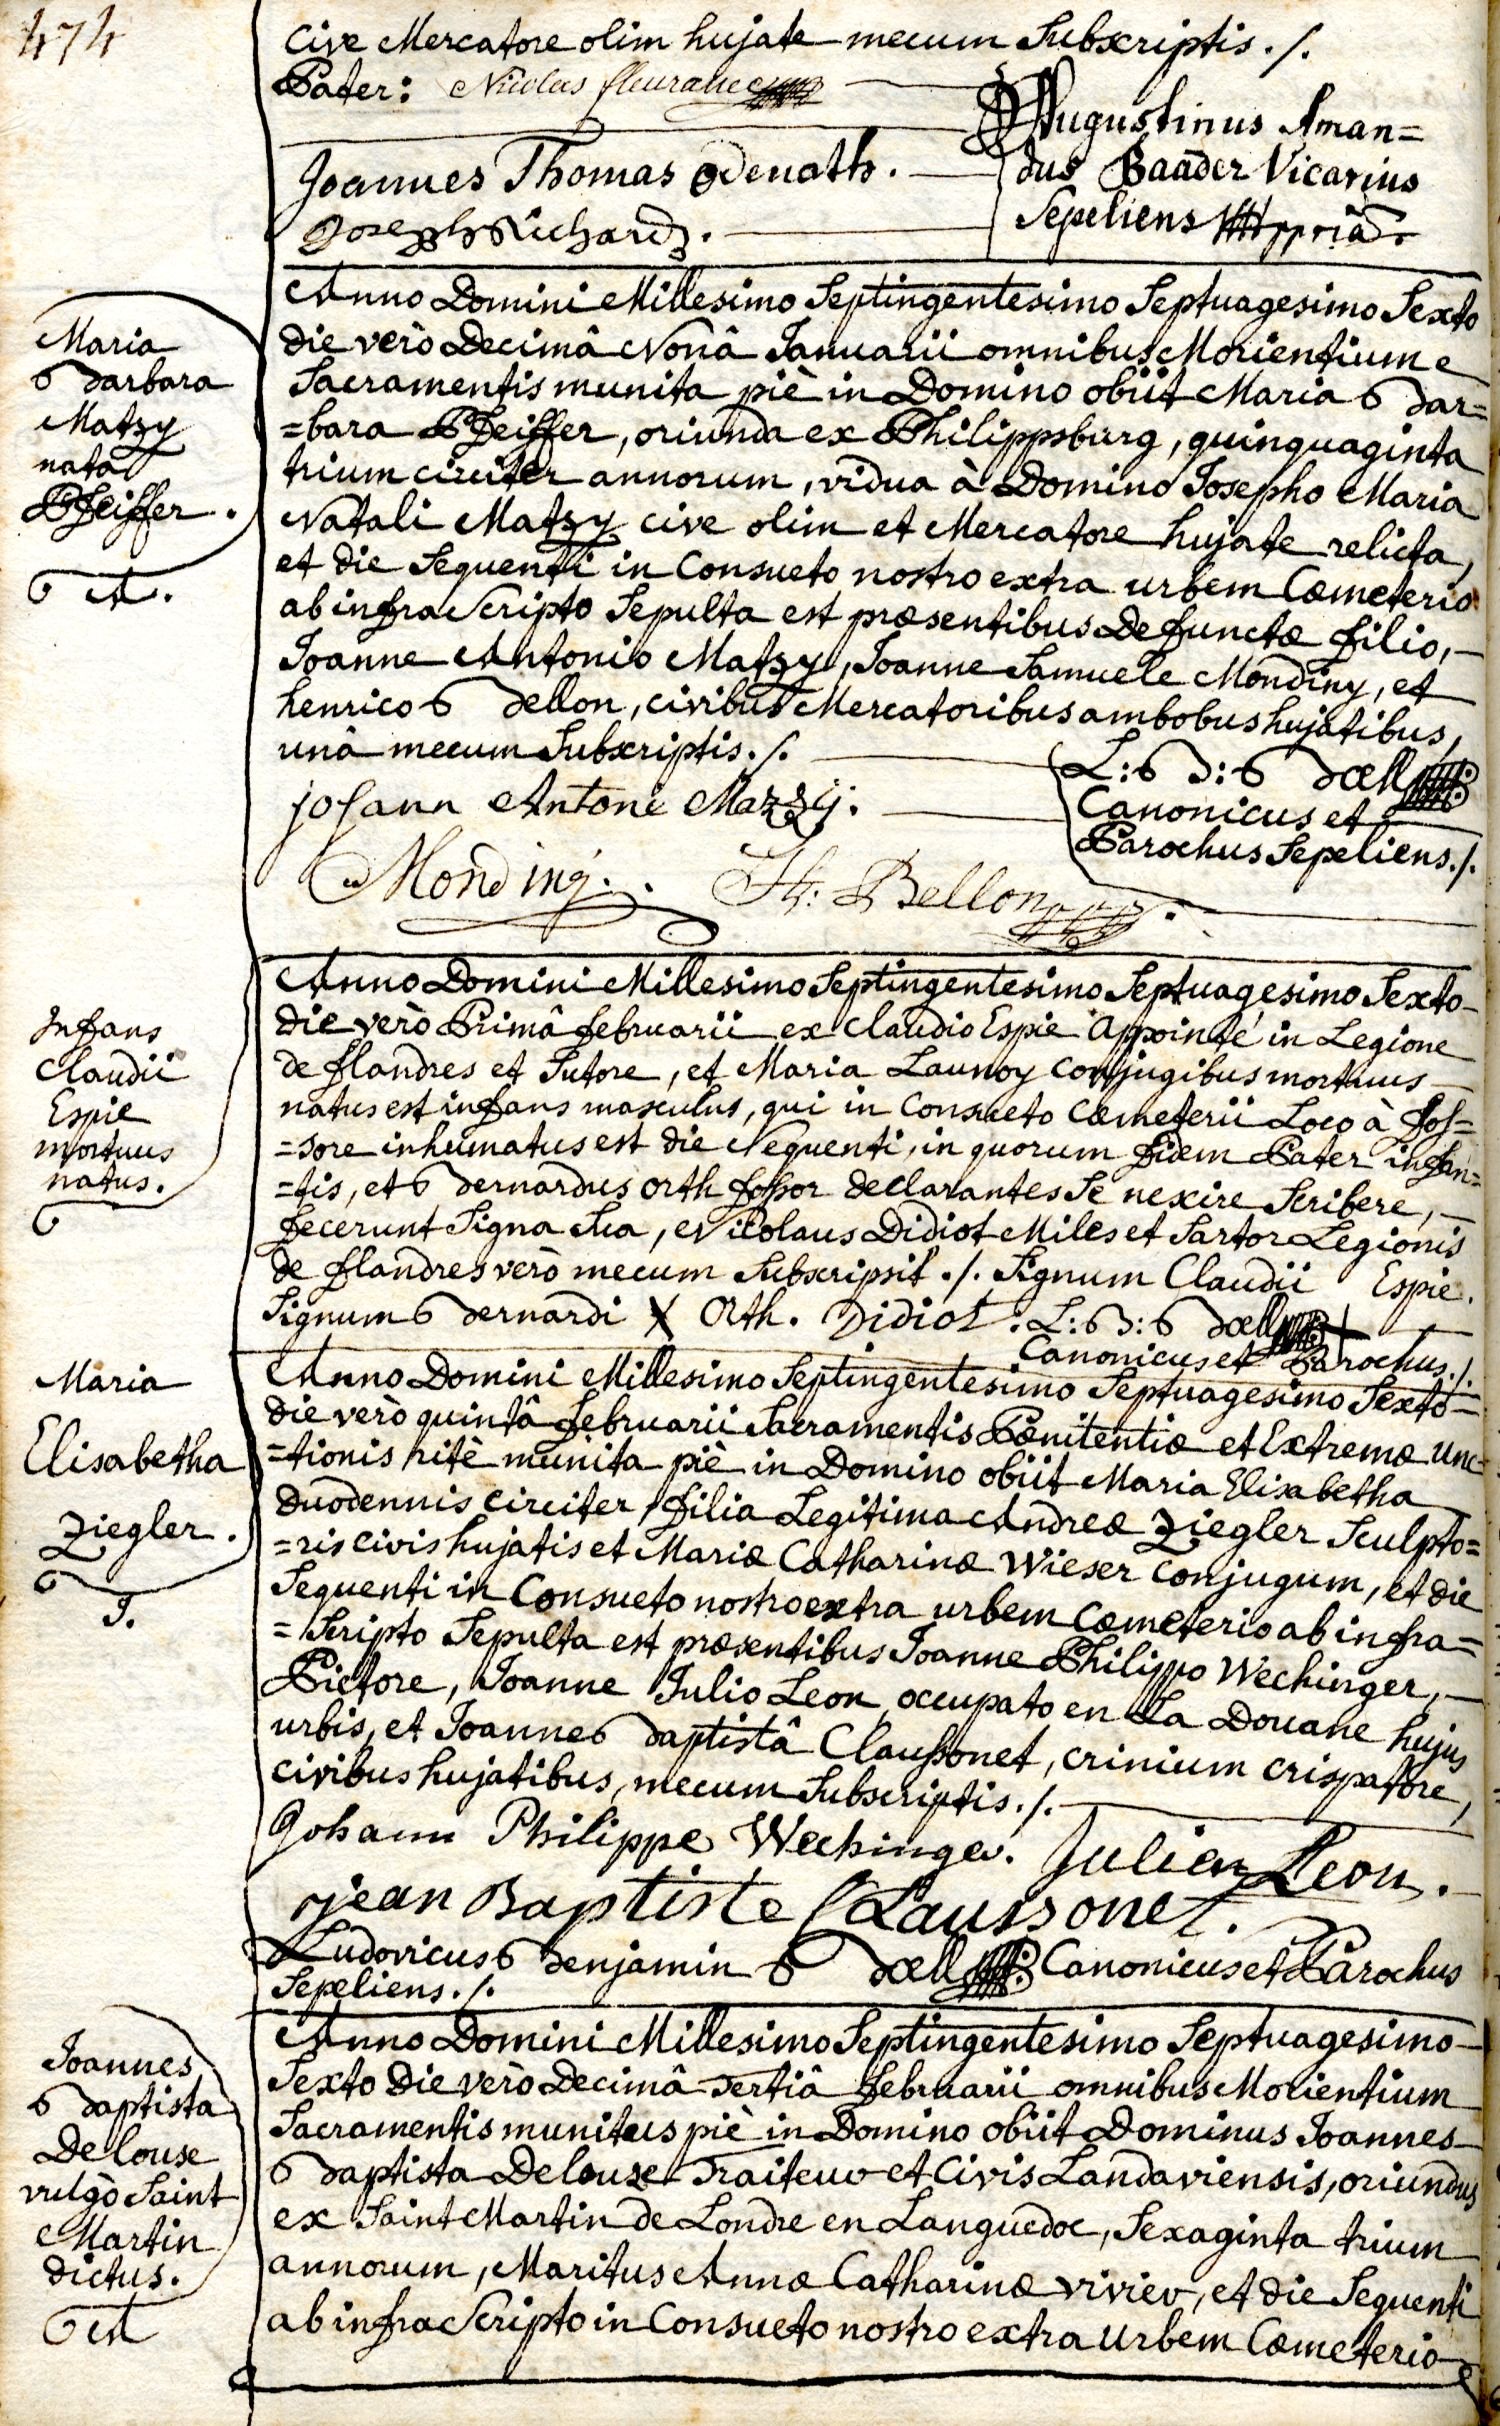 474
Cive Mercatore olim hujate mecum Subscriptis ./.
Pater: Nicolas fleurance
Augustinus Aman=
Joannes Thomas Odenath.
dus Baader Vicarius
Sepeliens ppriâ.
Joseph Richard.
Anno Domini Millesimo Septingentesimo Septuagesimo Sexto
die verò Decimâ Nonâ Januarii omnibus Morientium
Sacramentis munita piè in Domino obiit Maria Bar=
=bara Pfeiffer, oriunda ex Philippsburg, quinquaginta
trium circiter annorum, vidua à Domino Josepho Maria
Natali Matzy cive olim et Mercatore hujate relicta,
et die Sequenti in Consueto nostro extra urbem Cœmeterio
ab infra Scripto Sepulta est præsentibus Defunctæ filio,
Joanne Antonio Matzy, Joanne Samuele Mondiny, et
henrico Bellon, civibus Mercatoribus ambobus hujatibus,
unà mecum Subscriptis ./.
Maria
Barbara
Matzy
nata
Pfeiffer.
A.
L: B: Bœll
Canonicus et
Parochus Sepeliens ./.
johann Antoni Mazzij.
Mondiny.
H: Bellon
Anno Domini Millesimo Septingentesimo Septuagesimo Sexto
die verò Primâ februarii ex Claudio Espie Appointé in Legione
de flandres et Sutore, et Maria Launoy Conjugibus mortuus
natus est infans masculus, qui in Consueto Cœmeterii Loco à fos=
=sore inhumatus est die Sequenti, in quorum fidem Pater infan=
=tis, et Bernardus Orth fossor declarantes Se nescire Scribere,
fecerunt Signa Sua, Nicolaus Didiot Miles et Sartor Legionis
de flandres verò mecum Subscripsit ./. Signum Claudii Espie.
Signum Bernardi X Orth. Didiot. L: B: Bœll
Canonicus et Parochus ./.
Infans
Claudii
Espie
mortuus
natus.
Anno Domini Millesimo Septingentesimo Septuagesimo Sexto
die verò quintâ februarii Sacramentis Pœnitentiæ et Extremæ Unc=
=tionis ritè munita piè in Domino obiit Maria Elisabetha
duodennis circiter, filia Legitima Andreæ Ziegler Sculpto=
=ris civis hujatis et Mariæ Catharinæ Wieser Conjugum, et die
Sequenti in Consueto nostro extra urbem Cœmeterio ab infra=
=Scripto Sepulta est præsentibus Joanne Philippo Wechinger,
Pictore, Joanne Julio Leon occupato en La Douane hujus
urbis, et Joanne Baptistâ Claussonet, crinium crispatore,
civibus hujatibus, mecum Subscriptis ./.
Maria
Elisabetha
Ziegler.
J.
Johann Philippe Wechinger. Julien Leon.
jean Baptiste Claussonet.
Ludovicus Benjamin Bœll Canonicus et Parochus
Sepeliens ./.
Anno Domini Millesimo Septingentesimo Septuagesimo
Sexto die verò Decimâ Tertiâ februarii omnibus Morientium
Sacramentis munitus piè in Domino obiit Dominus Joannes
Baptista Delouse Traiteur et Civis Landaviensis, oriundus
ex Saint Martin de Londre en Languedoc, Sexaginta trium
annorum, Maritus Annæ Catharinæ vivier, et die Sequenti
ab infra Scripto in Consueto nostro extra Urbem Cœmeterio
Joannes
Baptista
Delouse
vulgò Saint
Martin
dictus.
A